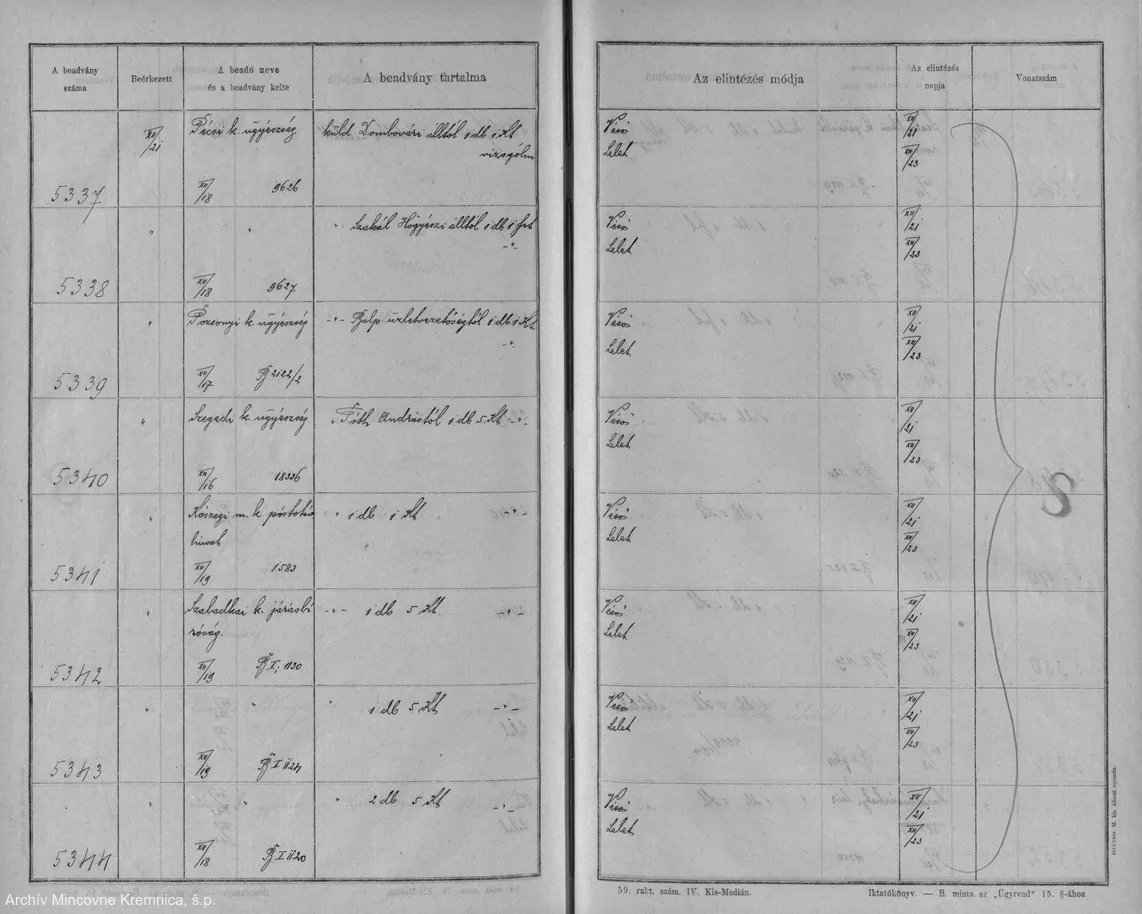 A beadvány
száma
Beérkezett
A beadó neve
és a beadvány kelte
A beadvány tartalma
Az elintézés módja
Az elintézés
napja
Vonatszám
5337
XII/21
Pécsi k. ügyészség
XII/18 9626
küld Dombovári álltól 1 db 1 Kt
vizsgálni
Véső
Lelet
XII/21
XII/23
5338
" "
XII/18 9627
" Szakál Hőgyészi álltól 1 db 1 frt
-"-
Véső
Lelet
XII/21
XII/23
5339
"
Pozsonyi k. ügyészség
XII/17 2122/2
-"- üzletvezetőségtől 1 db 1 Kt
-"-
Véső
Lelet
XII/21
XII/23
5340
"
Szegedi k. ügyészség
XII/16 18336
" Tóth Andrástól 1 db 5 Kt -"-
Véső
Lelet
XII/21
XII/23
5341
"
Kőszegi m. k. postata
XII/19 1583
" 1 db 1 Kt -"-
Véső
Lelet
XII/21
XII/23
5342
"
Szabadkai k. járásbí
róság.
XII/19 I; 1130
-"- 1 db 5 Kt -"-
Véső
Lelet
XII/21
XII/23
5343
" "
XII/19 I 1124
" 1 db 5 Kt -"-
Véső
Lelet
XII/21
XII/23
5344
" "
XII/18 I 1120
" 2 db 5 Kt -"-
Véső
Lelet
XII/21
XII/23
8
59. rakt. szám. IV. Kis-Medián.
Iktatókönyv. — B. minta az „Ügyrend" 15. §-ához
Archív Mincovne Kremnica, š.p.